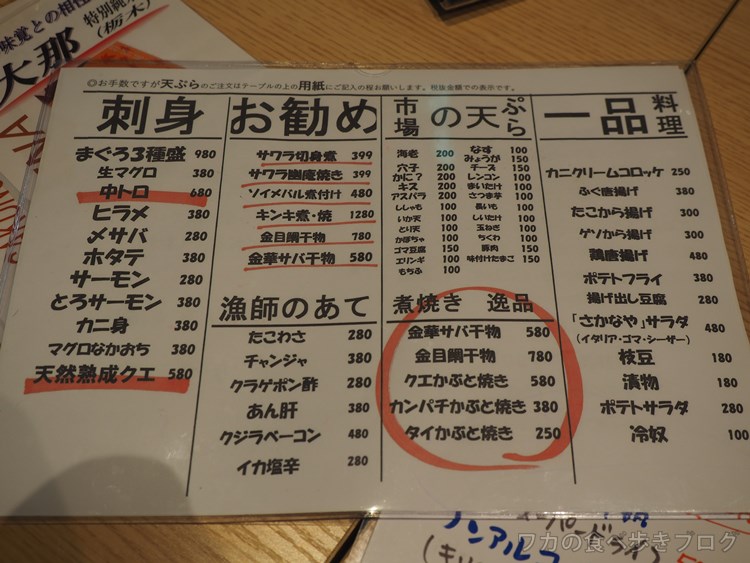 味覚との相性
大那
特別純米
(栃木)
◎お手数ですが天ぷらのご注文はテーブルの上の用紙にご記入の程お願いします。税抜金額での表示です。
刺身
まぐろ3種盛 980
生マグロ 380
中トロ 680
ヒラメ 380
メサバ 280
ホタテ 380
サーモン 280
とろサーモン 380
カニ身 380
マグロなかおち 380
天然熟成クエ 580
お勧め
サワラ切身煮 399
サワラ幽庵焼き 399
ソイメバル煮付け 480
キンキ煮・焼 1280
金目鯛干物 780
金華サバ干物 580
漁師のあて
たこわさ 280
チャンジャ 380
クラゲポン酢 280
あん肝 380
クジラベーコン 480
イカ塩辛 280
市場の天ぷら
海老 200 なす 100
みょうが 150
穴子 200 チーズ 150
かに? 200 レンコン 100
キス 200 まいたけ 100
アスパラ 200 さつま芋 100
ししゃも 100 長いも 100
いか天 100 しいたけ 100
とり天 100 玉ねぎ 100
かぼちゃ 100 ちくわ 100
ゴマ豆腐 150 豚肉 150
エリンギ 100 味付けたまご 150
もちふ 100
煮焼き 逸品
金華サバ干物 580
金目鯛干物 780
クエかぶと焼き 580
カンパチかぶと焼き 380
タイかぶと焼き 250
一品料理
カニクリームコロッケ 250
ふぐ唐揚げ 380
たこから揚げ 300
ゲソから揚げ 300
鶏唐揚げ 480
ポテトフライ 380
揚げ出し豆腐 280
「さかなや」サラダ 480
(イタリア・ゴマ・シーザー)
枝豆 180
漬物 180
ポテトサラダ 280
冷奴 100
ノンアルコ
(キリ
ワカの食べ歩きブログ